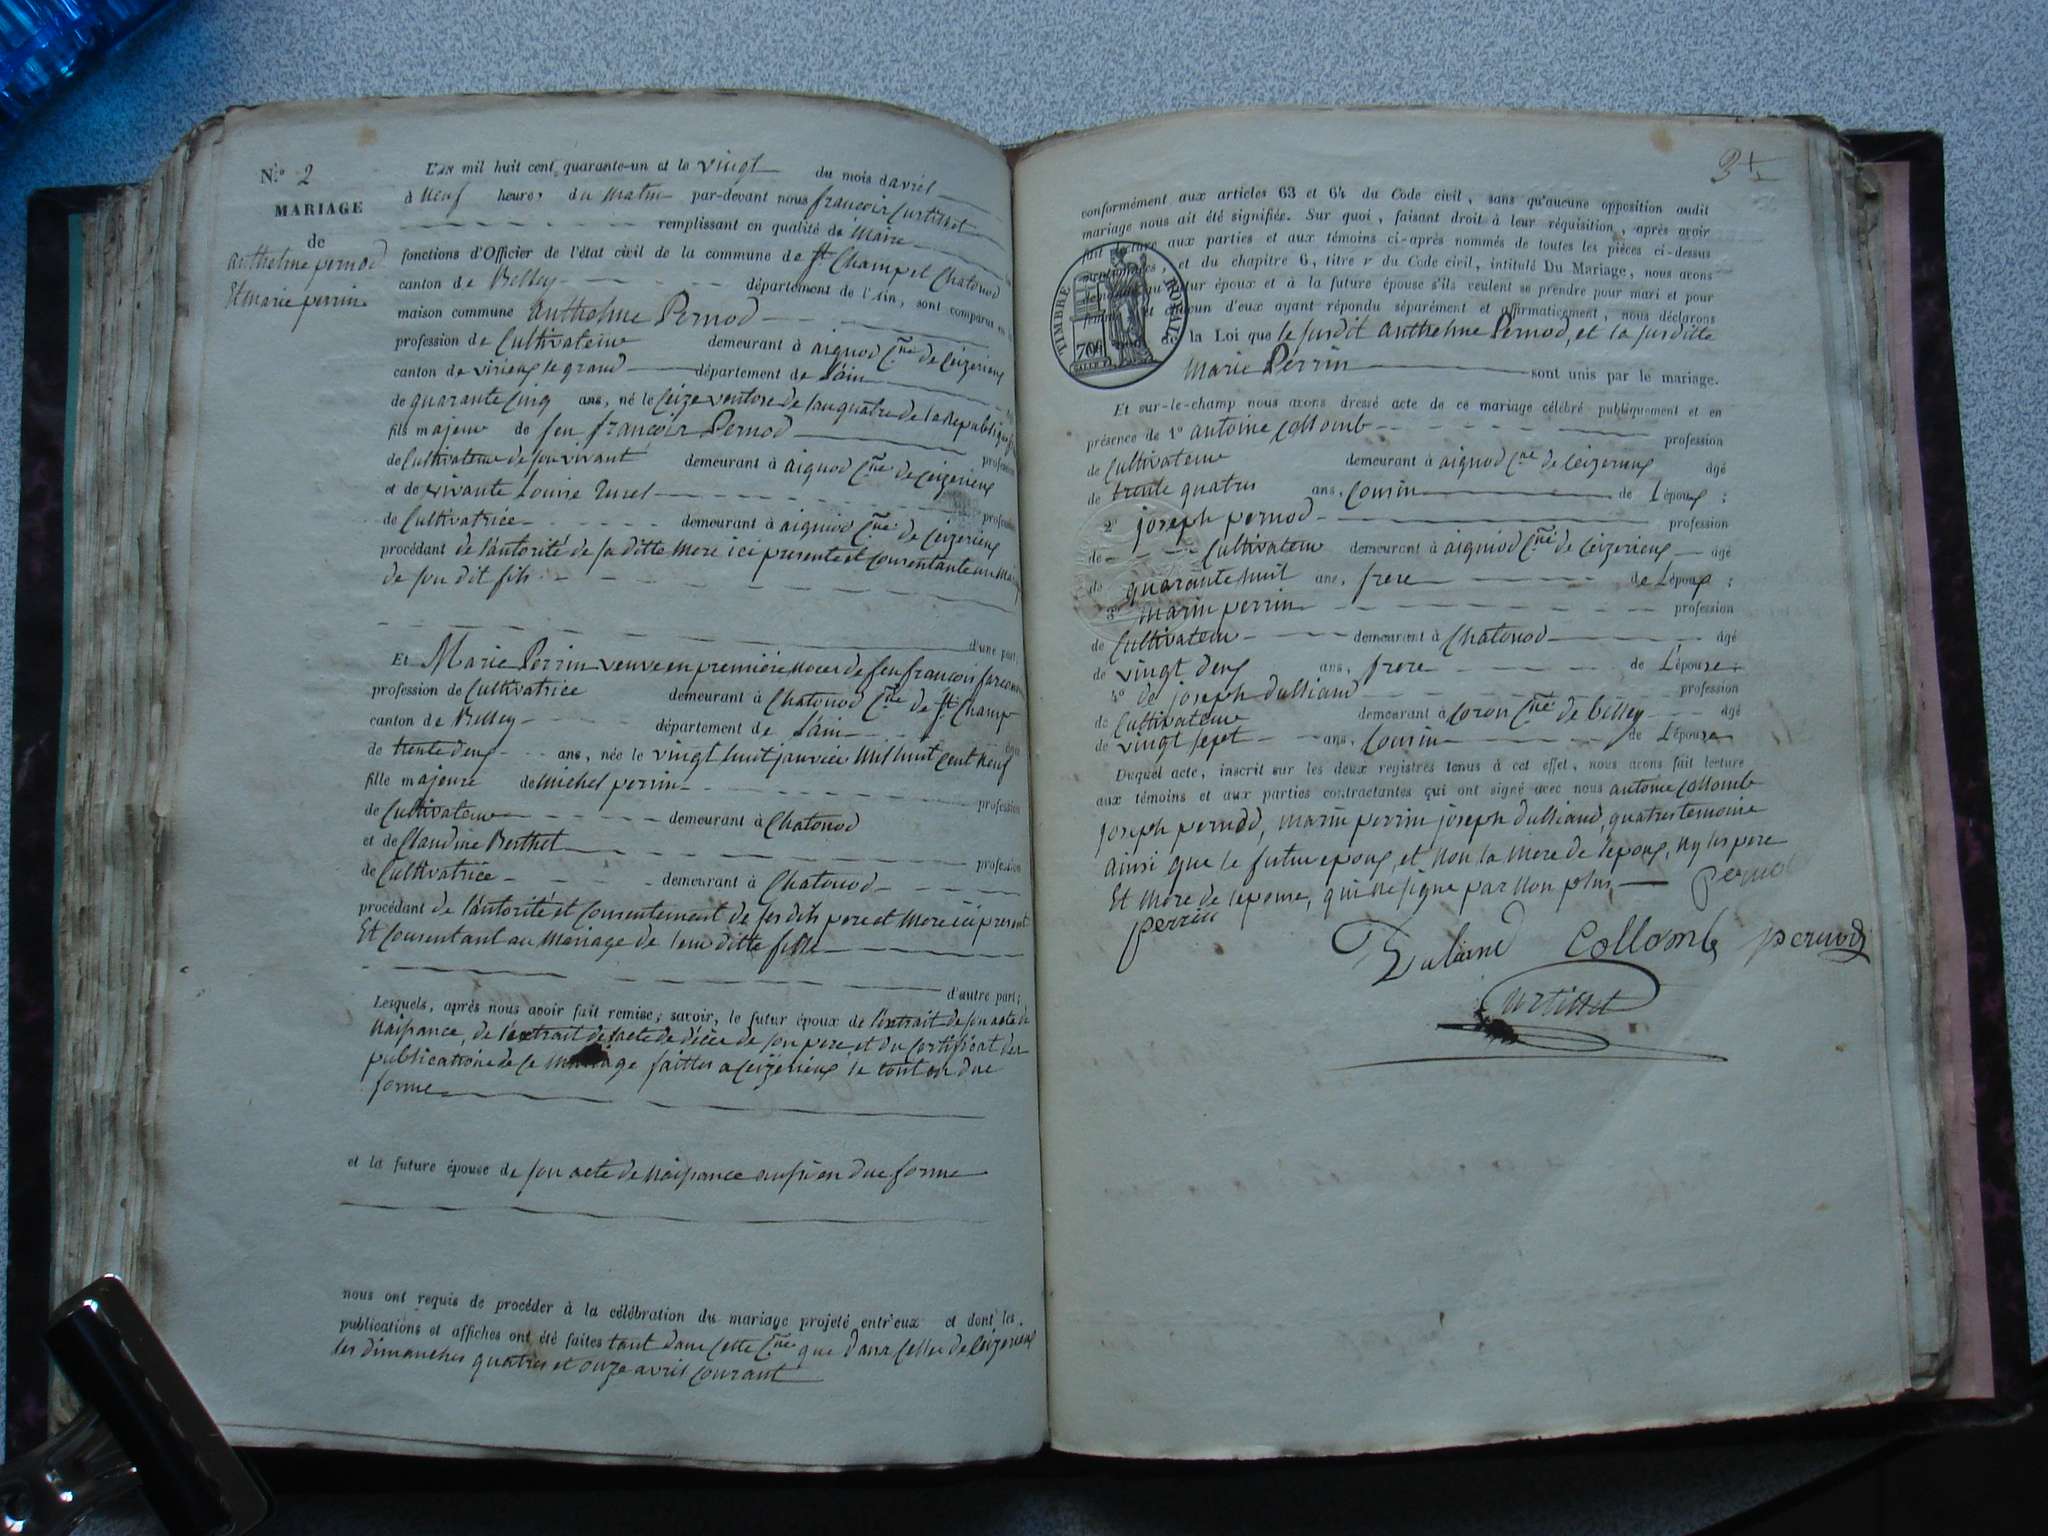 N.º 2
MARIAGE
de
anthelme pernod
Et marie perrin
L'AN mil huit cent quarante-un et le vingt du mois d'avril
à neuf heures du matin par-devant nous francois Curtillet
remplissant en qualité de Maire
fonctions d'Officier de l'état civil de la commune de St Champ et Chatonod
canton de Belley département de l'Ain, sont comparus en la
maison commune Anthelme Pernod
profession de Cultivateur demeurant à aignod Cne de Ceizerieux
canton de virieux le grand département de L'ain
de quarante cinq ans, né le Seize ventose de l'an quatre de la Republique
fils majeur de feu francois Pernod
de Cultivateur de son vivant demeurant à aignod Cne de Ceizerieux profession
et de vivante Louise
de Cultivatrice demeurant à aignod Cne de Ceizerieux profession
procédant de l'autorité de sa ditte mere ici presente et consentante au
de son dit fils
d'une part;
Et Marie Perrin veuve en première noces de feu francois
profession de Cultivatrice demeurant à Chatonod Cne de St Champ
canton de Belley département de L'ain
de trente deux ans, née le vingt huit janvier mil huit cent neuf
fille majeure de michel perrin
de Cultivateur demeurant à Chatonod profession
et de Claudine Berthet
de Cultivatrice demeurant à Chatonod profession
procédant de l'autorité et consentement de ses dits pere et mere ici present
Et consentant au mariage de leur ditte fille
d'autre part;
Lesquels, après nous avoir fait remise; savoir, le futur époux de l'extrait de son acte de
naissance, de l'extrait de l'acte de décès de son pere et du certificat des
publications de ce mariage faittes a Ceizerieux le tout en due
forme
et la future épouse de son acte de naissance aussi en due forme
nous ont requis de procéder à la célébration du mariage projeté entr'eux et dont les
publications et affiches ont été faites tant dans cette Cne que dans celle de Ceizerieux
les dimanches quatres et onze avril courant
conformément aux articles 63 et 64 du Code civil, sans qu'aucune opposition audit
mariage nous ait été signifiée. Sur quoi, faisant droit à leur réquisition, après avoir
fait lecture aux parties et aux témoins ci-après nommés de toutes les pièces ci-dessus
mentionnées, et du chapitre 6, titre v du Code civil, intitulé Du Mariage, nous avons
demandé au futur époux et à la future épouse s'ils veulent se prendre pour mari et pour
femme et chacun d'eux ayant répondu séparément et affirmativement, nous déclarons
de la Loi que le susdit anthelme Pernod, et la susditte
Marie Perrin sont unis par le mariage.
TIMBRE ROYAL
Et sur-le-champ nous avons dressé acte de ce mariage célébré publiquement et en
présence de 1º antoine Collomb profession
de Cultivateur demeurant à aignod Cne de Ceizerieux âgé
de trente quatres ans, Cousin de L'époux;
2º joseph pernod profession
de Cultivateur demeurant à aigniod Cne de Ceizerieux âgé
de quarante huit ans, frere de L'époux;
3º marin perrin profession
de Cultivateur demeurant à Chatonod âgé
de vingt deux ans, frere de L'épouse;
4º de joseph dulliand profession
de Cultivateur demeurant à Coron Cne de belley âgé
de vingt sept ans, Cousin de L'épouse
Duquel acte, inscrit sur les deux registres tenus à cet effet, nous avons fait lecture
aux témoins et aux parties contractantes qui ont signé avec nous antoine Collomb
joseph pernod, marin perrin joseph dulliand, quatres temoins
ainsi que le futur epoux, et non la mere de l'epoux, ny les pere
Et mere de l'epouse, qui ne signe pas non plus pernod
perrin
Duliand Collomb pernod
Curtillet